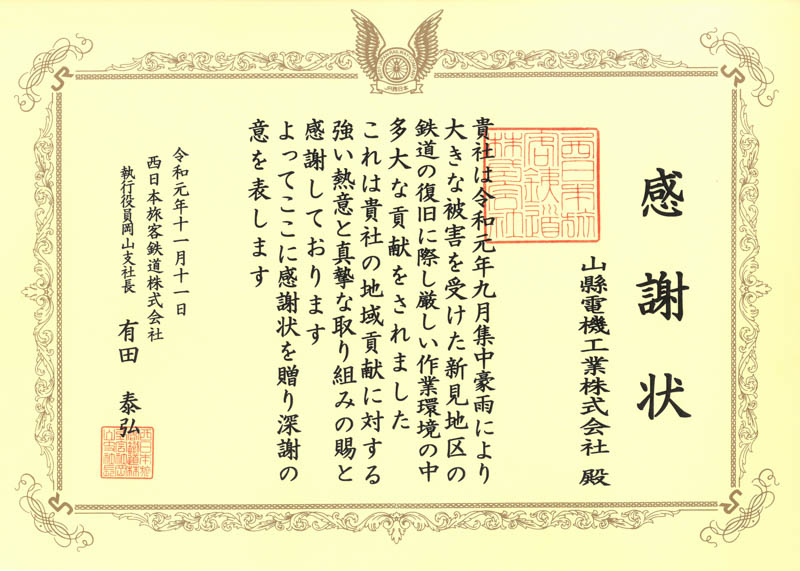 感謝状
山縣電機工業株式会社 殿
貴社は令和元年九月集中豪雨により
大きな被害を受けた新見地区の
鉄道の復旧に際し厳しい作業環境の中
多大な貢献をされました
これは貴社の地域貢献に対する
強い熱意と真摯な取り組みの賜と
感謝しております
よってここに感謝状を贈り深謝の
意を表します
令和元年十一月十一日
西日本旅客鉄道株式会社
執行役員岡山支社長 有田 泰弘
JR西日本